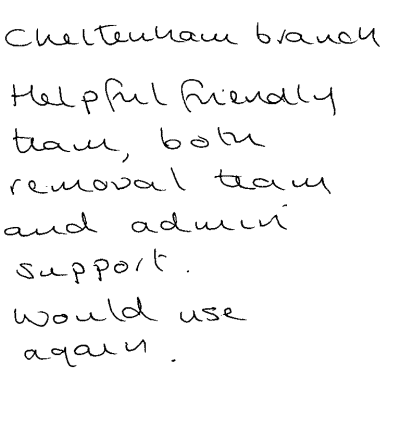 Cheltenham branch
Helpful friendly
team, both
removal team
and admin
support.
Would use
again.